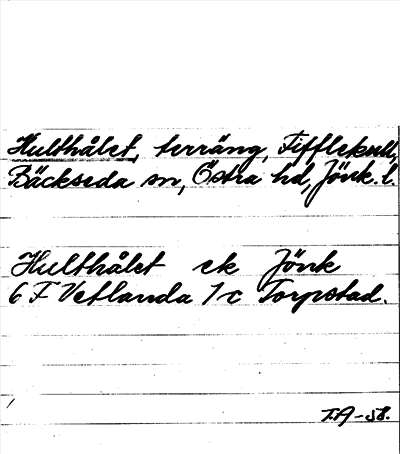 Hulthålet, terräng, Fifflekull,
Bäckseda sn, Östra hd, Jönk. l.
Hulthålet ek Jönk
6 F Vetlanda 7 c Torpstad.
T.A -58.